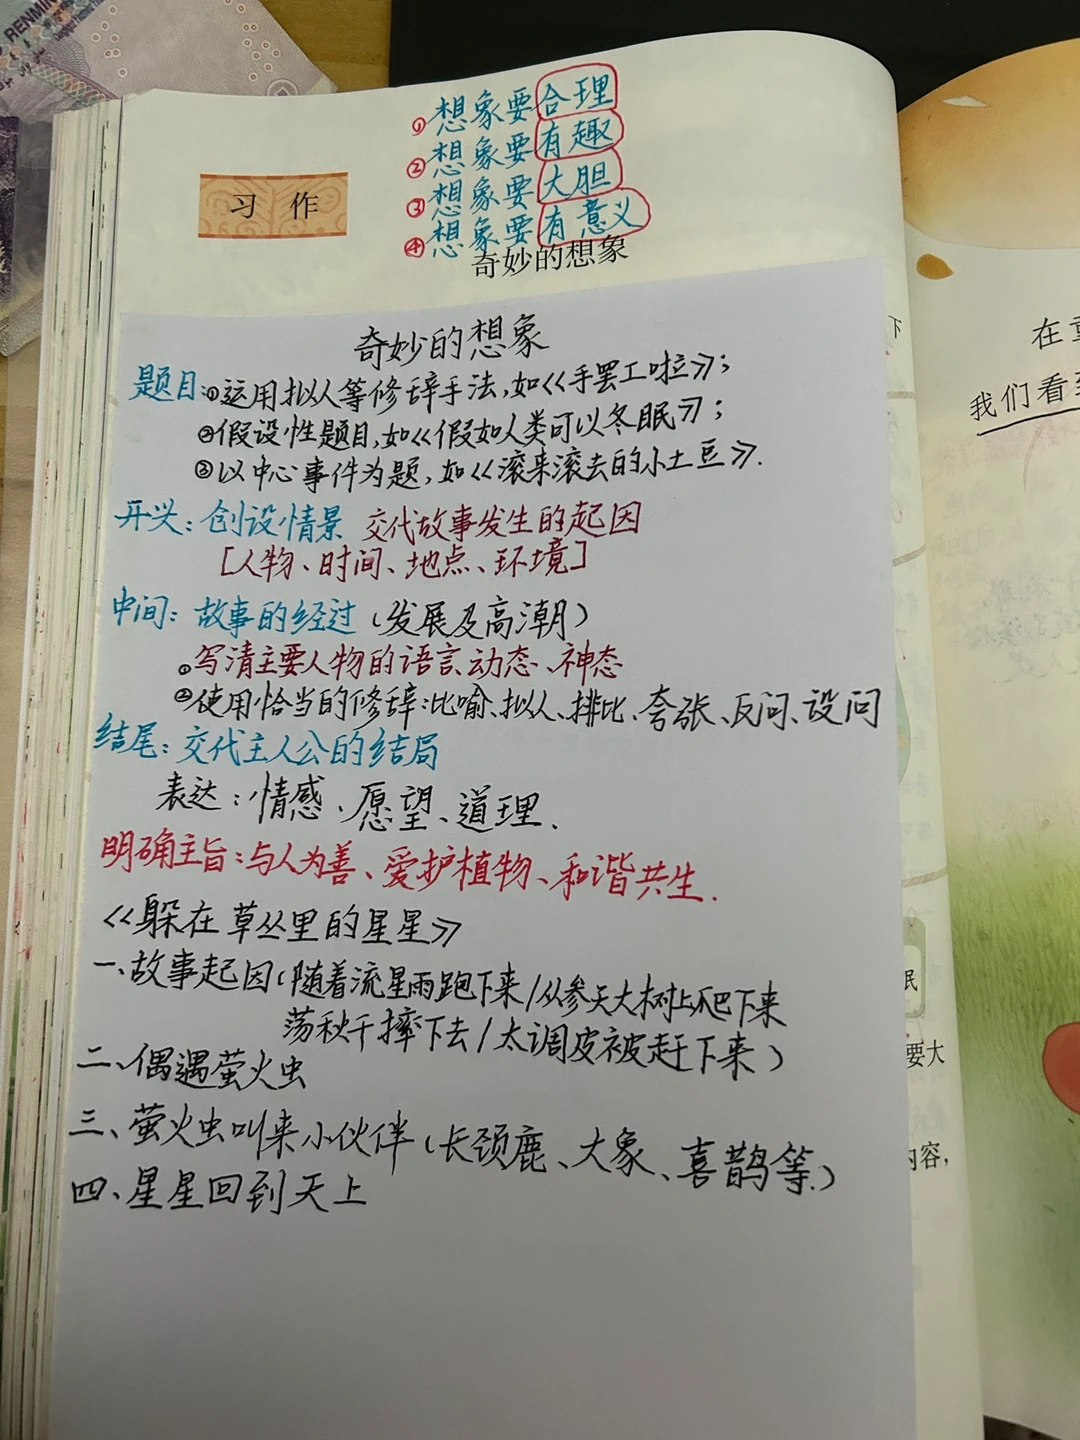 RENMIN
①想象要合理
②想象要有趣
③想象要大胆
④想象要有意义
习 作
奇妙的想象
奇妙的想象
题目:①运用拟人等修辞手法,如《手罢工啦》;
②假设性题目,如《假如人类可以冬眠》;
③以中心事件为题,如《滚来滚去的小土豆》.
开头:创设情景 交代故事发生的起因
[人物、时间、地点、环境]
中间:故事的经过(发展及高潮)
①写清主要人物的语言、动态、神态
②使用恰当的修辞:比喻、拟人、排比、夸张、反问、设问
结尾:交代主人公的结局
表达:情感、愿望、道理.
明确主旨:与人为善、爱护植物、和谐共生.
《躲在草丛里的星星》
一、故事起因(随着流星雨跑下来/从参天大树上爬下来
荡秋千摔下去/太调皮被赶下来)
二、偶遇萤火虫
三、萤火虫叫来小伙伴(长颈鹿、大象、喜鹊等.)
四、星星回到天上
下
民
要大
内容,
在重
我们看到